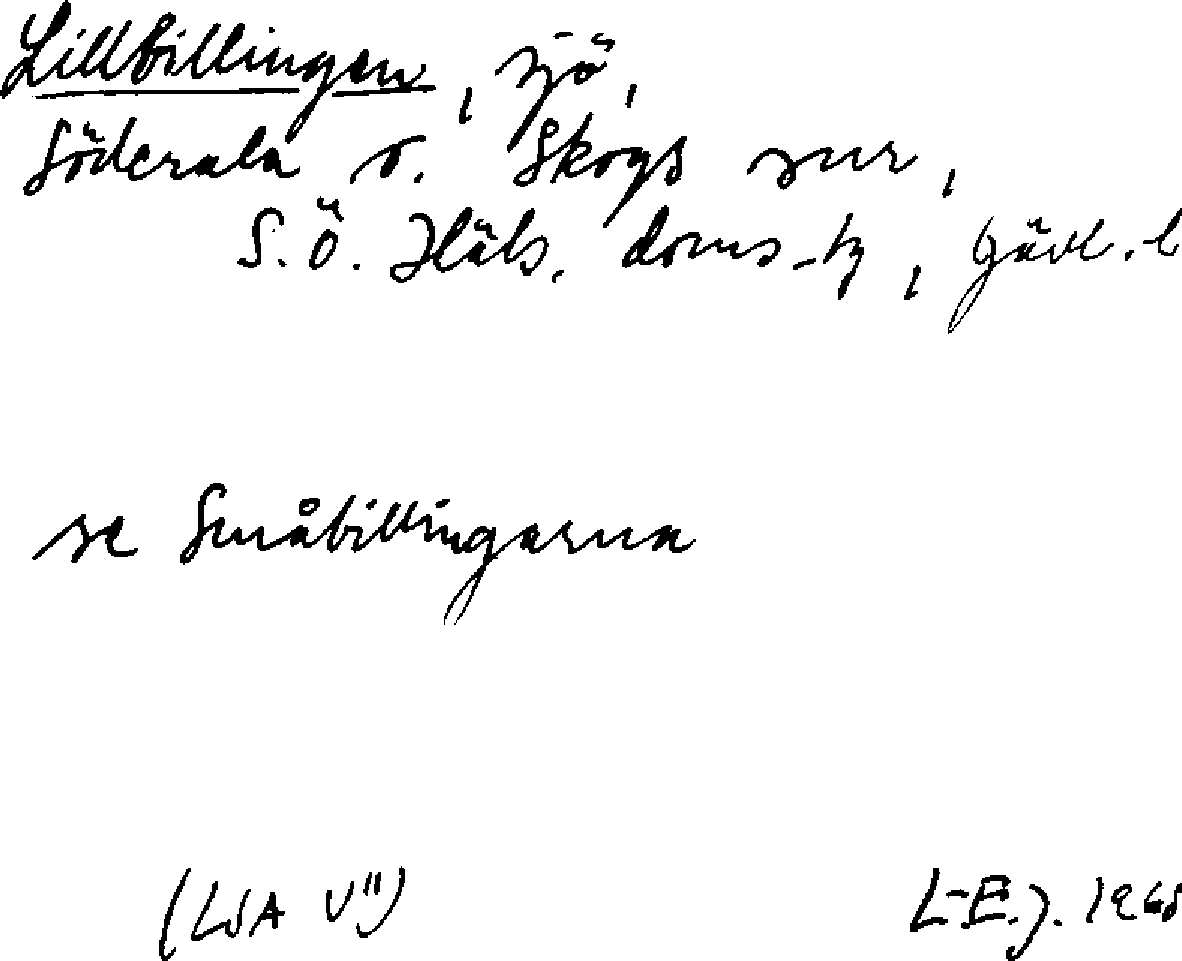 Lillbillingen, sjö,
Söderala o. Skogs snr,
S.Ö. Häls. doms-tg, Gävl. l
se Småbillingarna
(LSA V")
L-E.J.